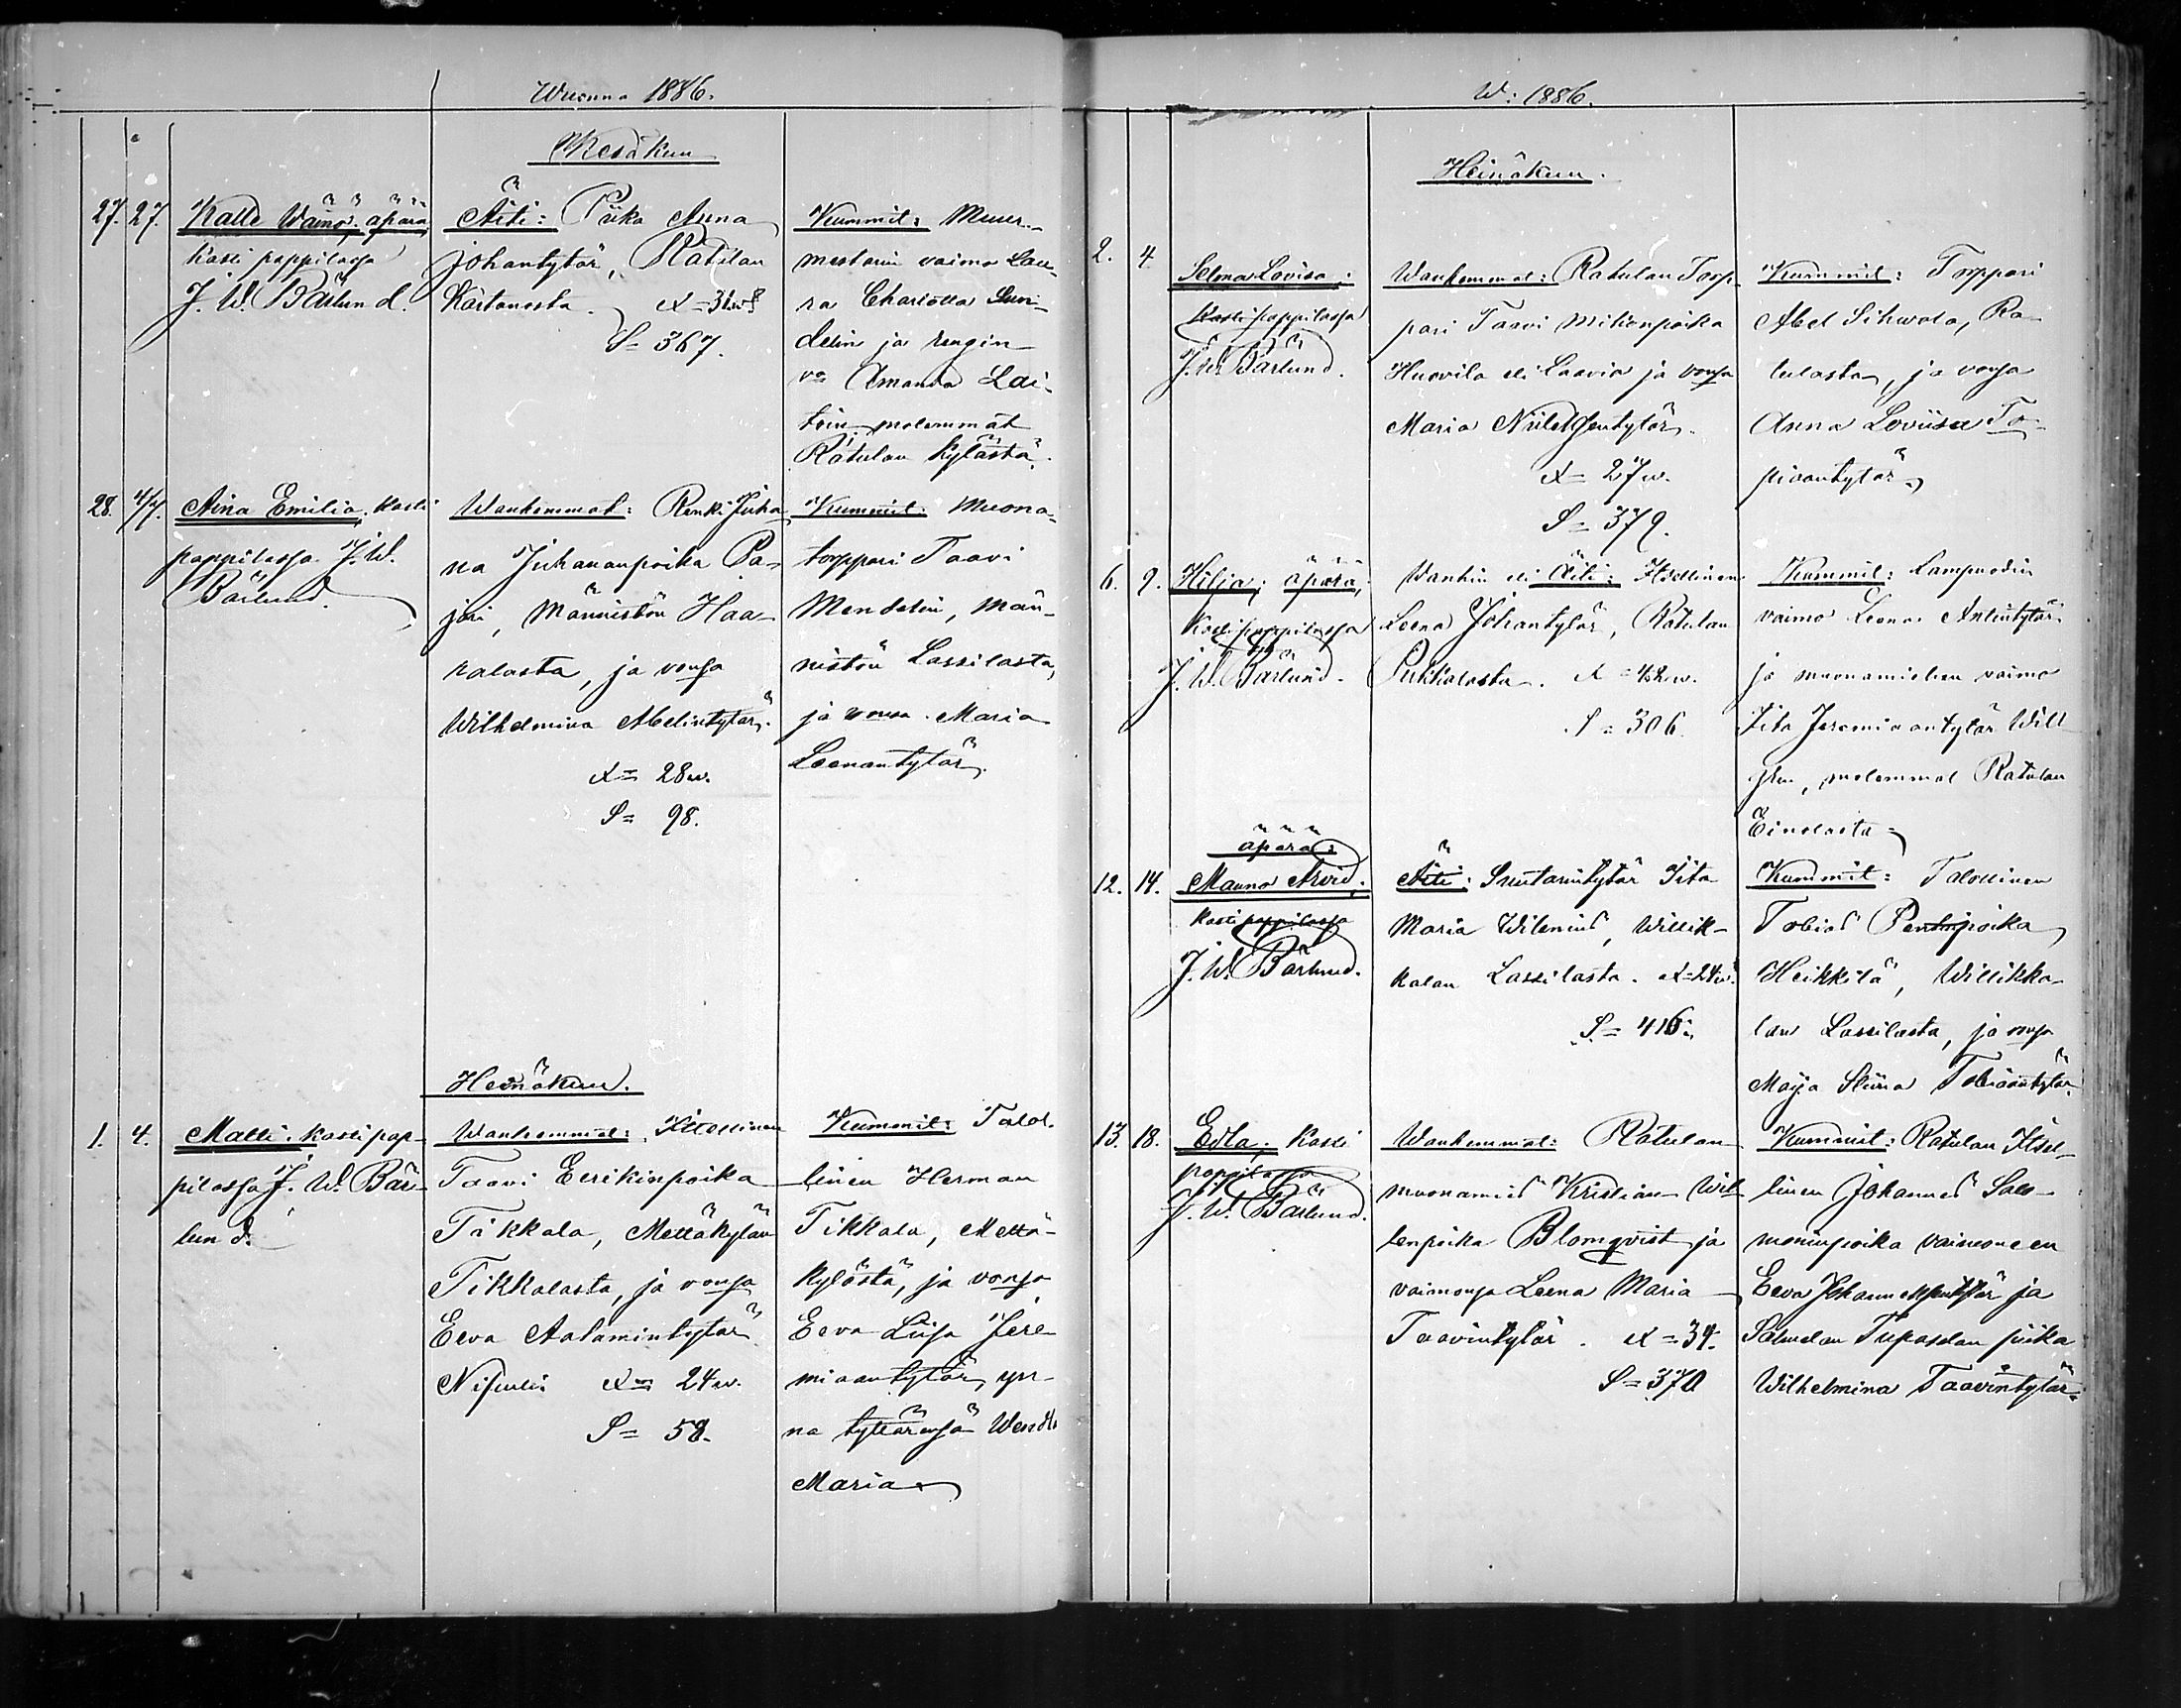 Wuonna 1886.
Kesäkuu
27. 27. Kalle Wäinö, äpärä,
kasti pappilassa
J. W. Bärlund.
Äiti: Piika Anna
Johantytär, Ratulan
Kartanosta.
S= 367.
Kummit: Muur-
mestarin vaimo Lau-
ra Charlotta Sun-
delin ja rengin
vo Amanda Lai-
toin molemmat
Ratulan kylästä.
28. 4/7. Aina Emilia, kasti
pappilassa J. W.
Bärlund.
Wanhemmat: Renki Juha
na Juhananpoika Pa-
jari, Männistön Haa-
palasta, ja vonsa
Wilhelmina Abelintytär.
Ä= 28w.
S= 98.
Kummit: Muona-
torppari Taavi
Mendelin, Män-
nistön Lassilasta,
ja vonsa Maria
Leenantytär.
Heinäkuu.
1. 4. Matti, kasti pap-
pilassa J. W. Bär-
lund.
Wanhemmat: Itsellinen
Taavi Eerikinpoika
Tikkala, Mettäkylän
Tikkalasta, ja vonsa
Eeva Aatamintytär
Ä= 24w.
S= 58.
Kummit: Talol-
linen Herman
Tikkala, Mettä-
kylästä, ja vonsa
Eeva Liisa Jere-
miaantytär, yn-
nä tyttärensä Wendla
Maria
W: 1886.
Heinäkuu.
2. 4. Selma Lovisa:
Kasti pappilassa
J. W. Bärlund.
Wanhemmat: Ratulan Torp-
pari Taavi Mikonpoika
Huovila eli Laavia ja vonsa
Maria
Ä= 27w.
S= 379.
Kummit: Torppari
Abel Sihvola, Ra-
tulasta, ja vonsa
Anna Loviisa To-
piaantytär.
6. 9. Hilja; äpärä,
Kasti pappilassa
J. W. Bärlund.
Wanhin eli Äiti: Itsellinen
Leena Johantytär, Ratulan
Pukkalasta. Ä= 42w.
S= 306.
Kummit: Lampuodin
vaimo Leena Antintytär
ja muonamiehen vaimo
Iita Jeremiaantytär Will
gren, molemmat Ratulan
Einolasta.
äpärä:
12. 14. Mauno Arvid,
kasti pappilassa
J. W. Bärlund.
Äiti: Suutarintytär Iita
Maria Wilenius, Willik-
kalan Lassilasta. Ä=24w.
S= 416.
Kummit: Talollinen
Tobias Pentinpoika
Heikkilä, Willikka-
lan Lassilasta, ja vonsa
Maija Stiina Tobiaantytär.
13. 18. Edla; kasti
pappilassa
J. W. Bärlund.
Wanhemmat: Ratulan
muonamies Kristian Wil-
lenpoika Blomqvist ja
vaimonsa Leena Maria
Taavintytär. Ä= 34.
S= 370
Kummit: Ratulan Itsel-
linen Johannes Salo-
moninpoika vaimoneen
Eeva ja
piika
Wilhelmina Taavintytär.